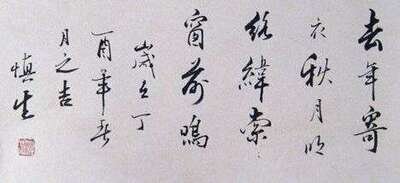 去年寄
衣秋月明
絡緯索々
窗前鳴
歲次丁
酉年春
月之吉
慎生